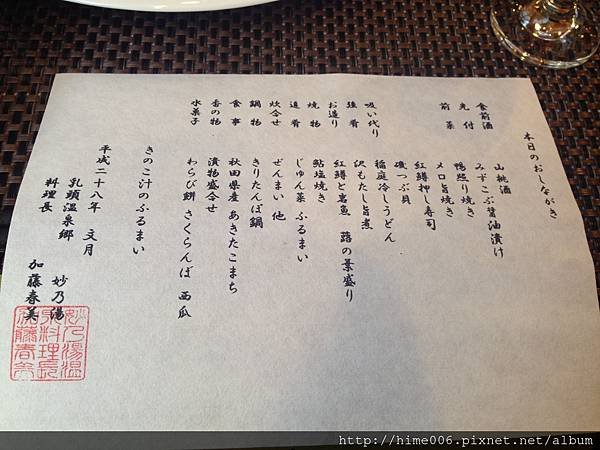 本日のおしながき
食前酒 山桃酒
先付 みずこぶ醤油漬け
前菜 鴨照り焼き
メロ旨焼き
紅鱒押し寿司
磯つぶ貝
吸い代り 稲庭冷しうどん
強肴 沢もたし旨煮
お造り 紅鱒と岩魚 蕗の葉盛り
焼物 鮎塩焼き
進肴 じゅん菜ふるまい
炊合せ ぜんまい 他
鍋物 きりたんぽ鍋
食事 秋田県産 あきたこまち
香の物 漬物盛合せ
水菓子 わらび餅 さくらんぼ 西瓜
きのこ汁のふるまい
平成二十八年 文月
乳頭温泉郷 妙乃湯
料理長 加藤春美
http://hime006.pixnet.net/album